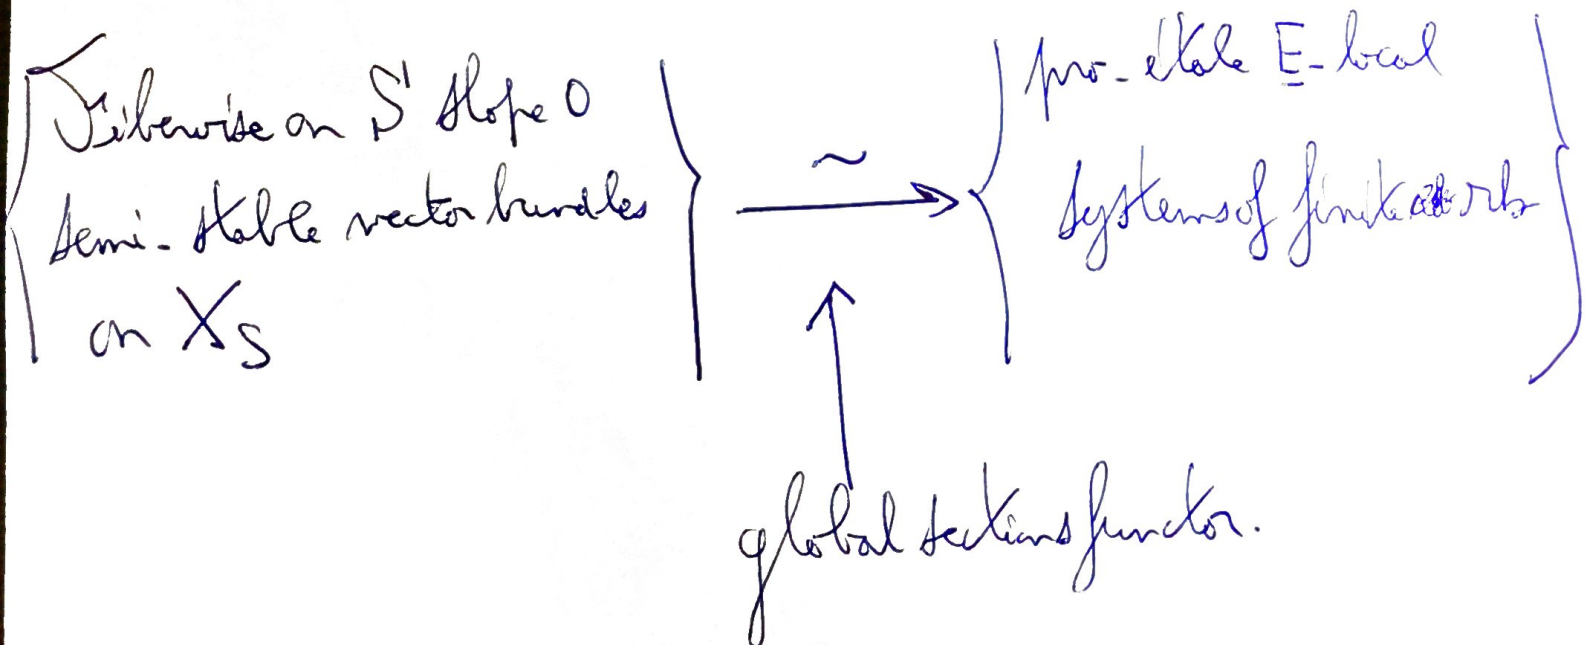 { Fiberwise on S slope 0
semi-stable vector bundles
on X_S }
∼
→
{ pro-étale E-local
systems of finite rk }
↑
global sections functor.